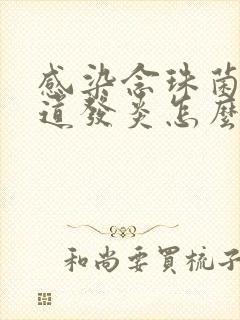 感染念珠菌
道發炎怎麼
和尚要買梳子